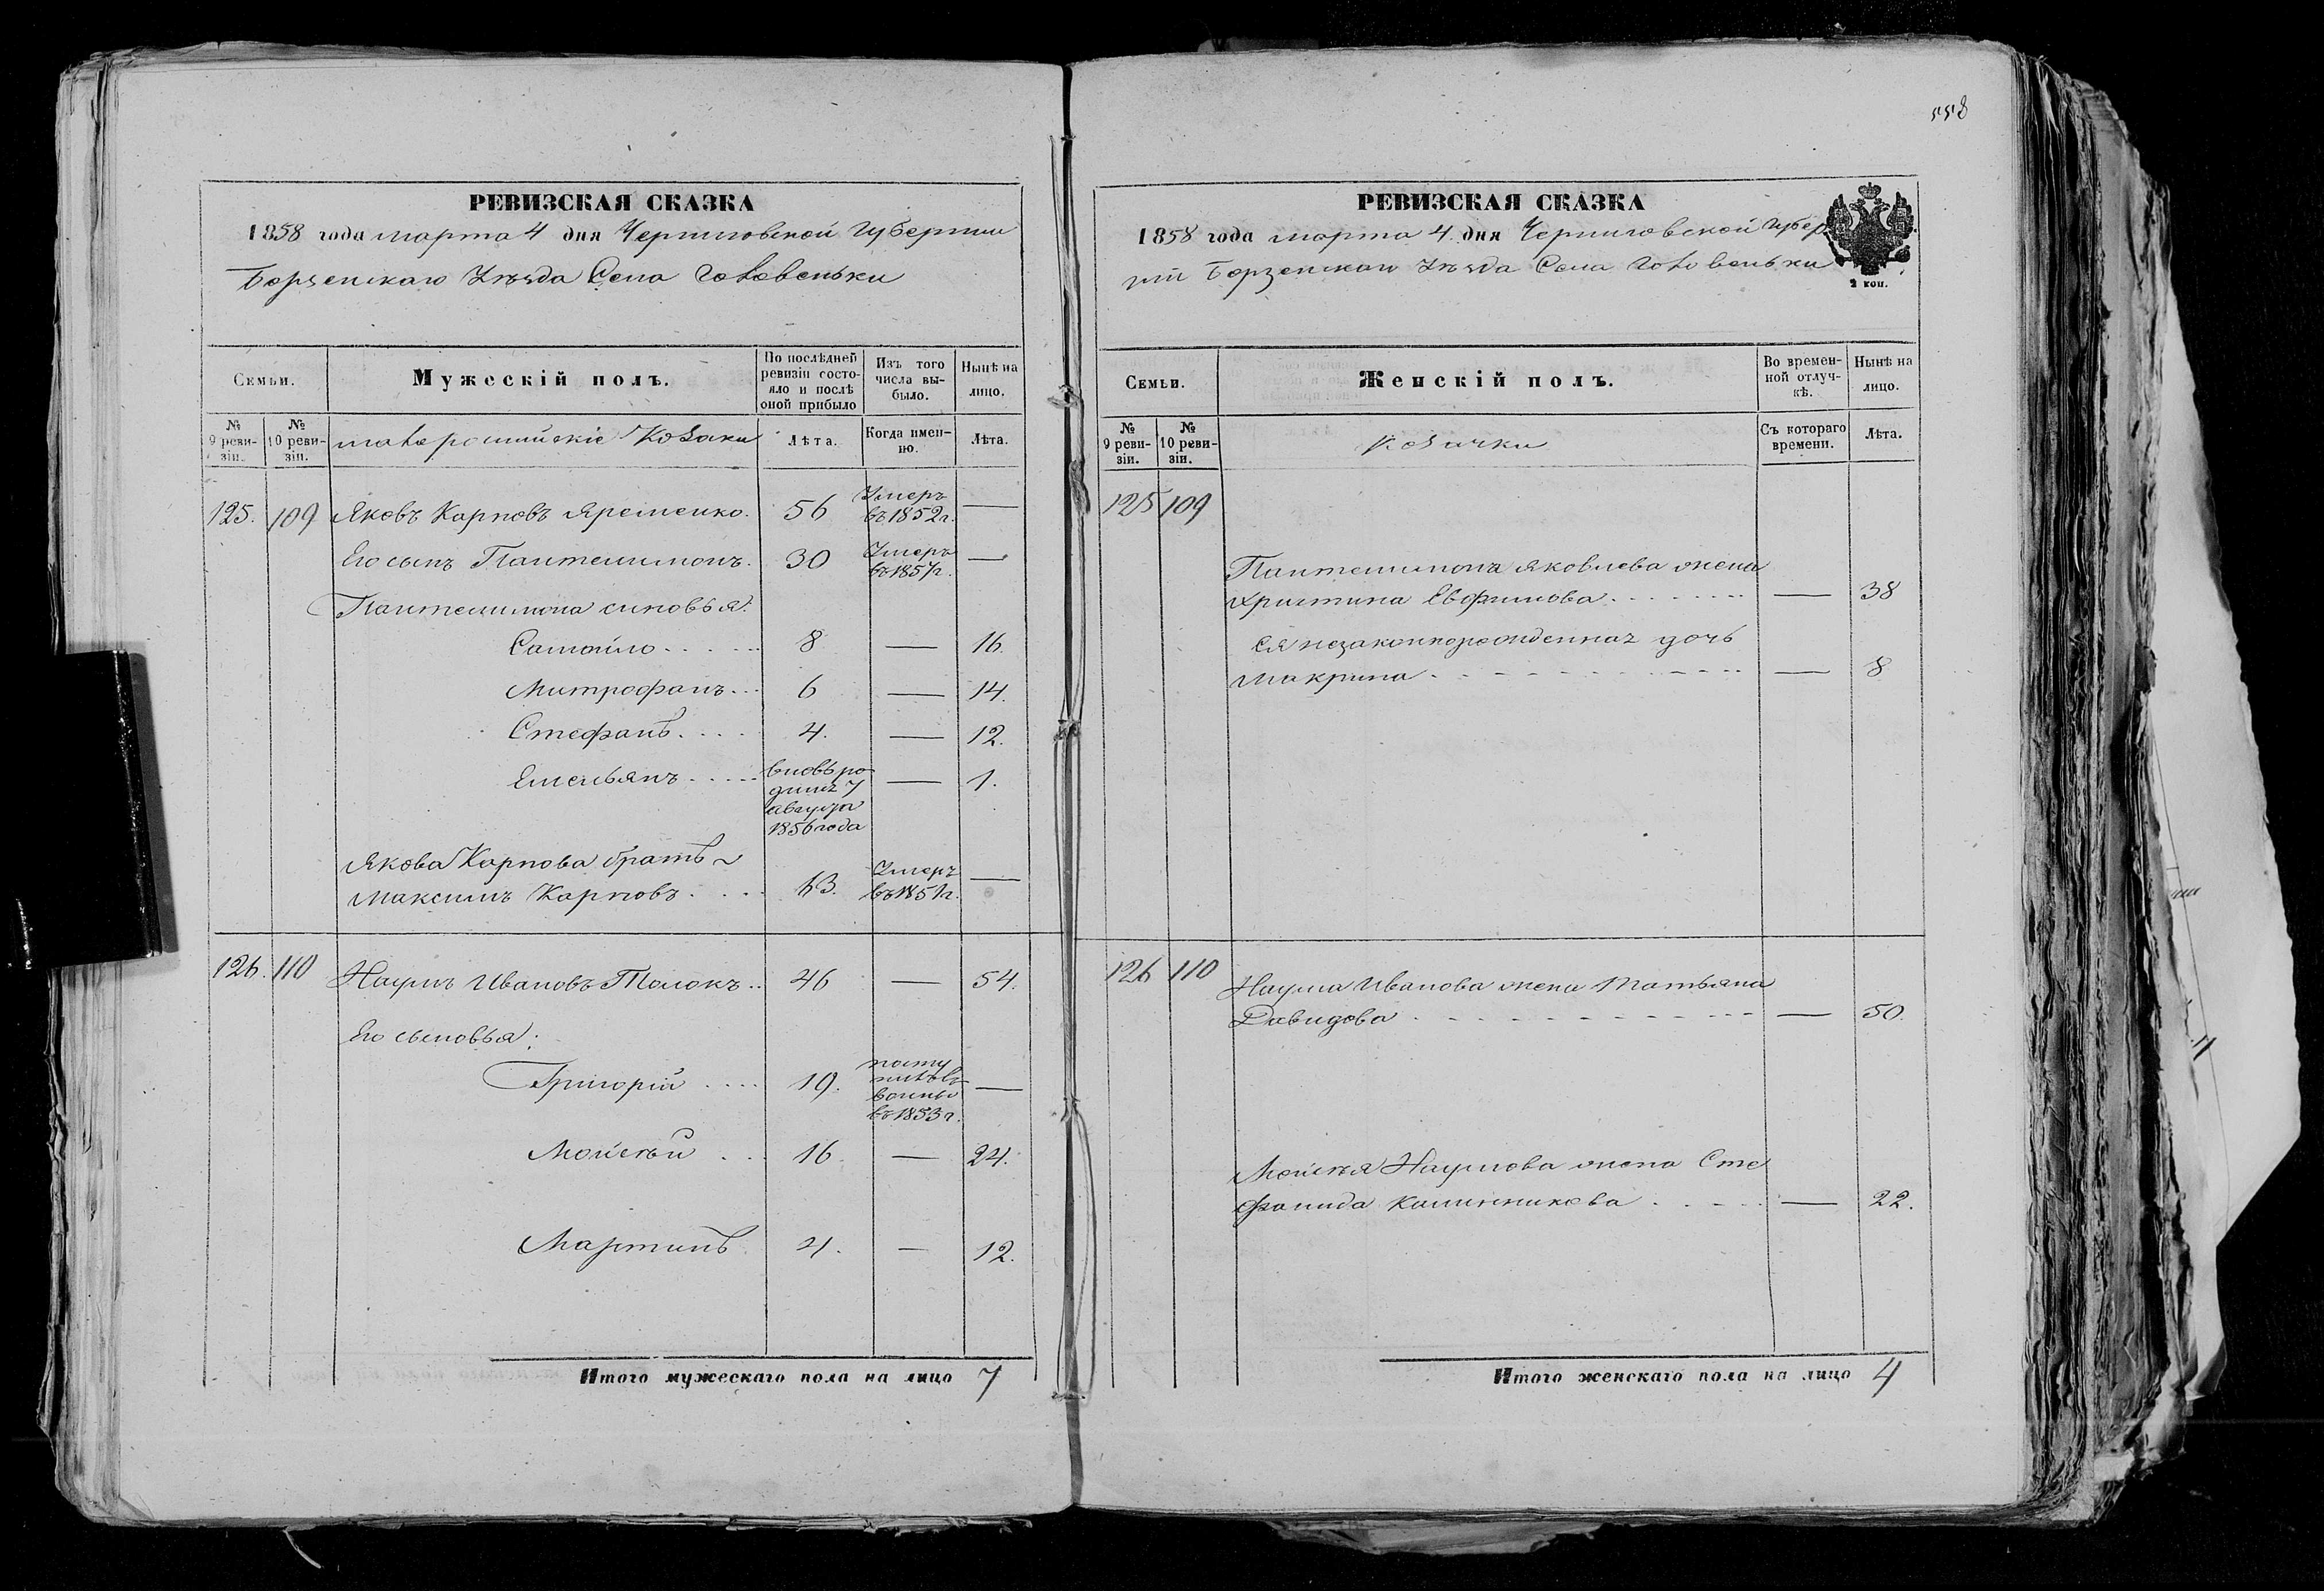 558
РЕВИЗСКАЯ СКАЗКА
1858 года марта 4 дня Черниговской Губернии
Борзенскаго Уѣзда Села Головеньки
Семьи.
Мужескій полъ.
По послѣдней ревизіи состояло и послѣ оной прибыло
Изъ того числа выбыло.
Нынѣ на лицо.
№ 9 ревизіи.
№ 10 ревизіи.
малороссийскіе Козаки
Лѣта.
Когда именно.
Лѣта.
125. 109 Яковъ Карповъ Яременко. 56 Умеръ въ 1852 г. —
Его сынъ Пантелимонъ. 30 Умеръ въ 1857 г. —
Пантелимона синовья:
Самойло..... 8 — 16.
Митрофанъ... 6 — 14.
Стефанъ.... 4. — 12.
Емельянъ..... вновь родилъ 7 августа 1856 года — 1.
Якова Карпова братъ
Максимъ Карповъ.... 43. Умеръ въ 1851 г. —
126. 110 Наумъ Ивановъ Толокъ.. 46 — 54.
Его сыновья:
Григорій .... 19. въ 1853 г. —
Мойсѣй ... 16 — 24.
Мартинъ 4. — 12.
Итого мужескаго пола на лицо 7
РЕВИЗСКАЯ СКАЗКА
1858 года марта 4. дня Черниговской Губер
ніи Борзенскаго Уѣзда Села Головеньки
2 коп.
Семьи.
Женскій полъ.
Во временной отлучкѣ.
Нынѣ на лицо.
№ 9 ревизіи.
№ 10 ревизіи.
Козачки
Съ котораго времени.
Лѣта.
125 109
Пантелимона Яковлева жена
Христина Евфимова........ — 38
Ея незаконнорожденная дочь
Макрина........... — 8
126 110
Наума Иванова жена Татьяна
Давидова........... — 50.
Мойсѣя Наумова жена Сте
фанида Калинникова..... — 22.
Итого женскаго пола на лицо 4